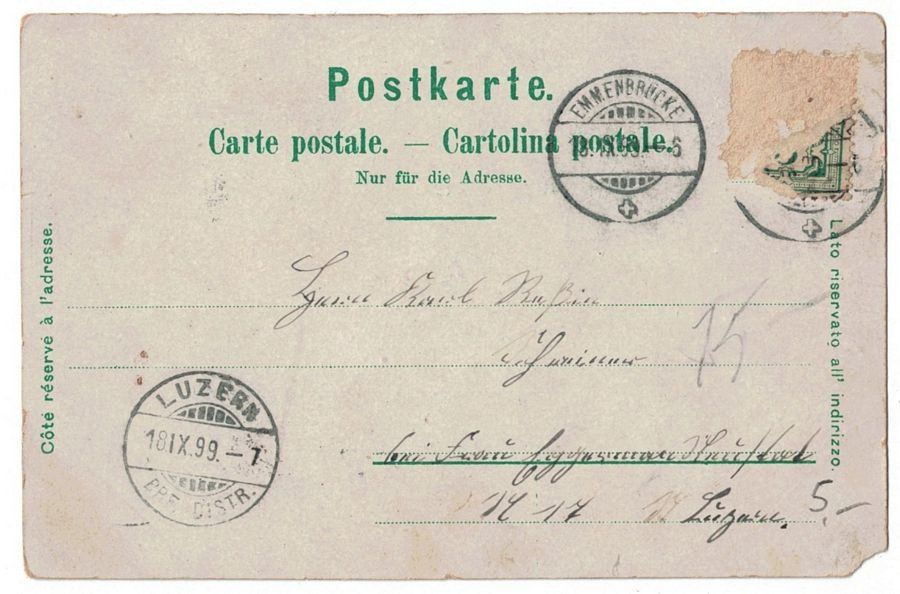 Postkarte.
Carte postale. — Cartolina postale.
Nur für die Adresse.
EMMENBRÜCKE
18.IX.99. - 6
Côté réservé à l'adresse.
Lato riservato all' indirizzo.
Herrn Karl
Schreiner
bei Frau Eggerman Neustat
N 17 Luzern.
5.-
LUZERN
18.IX.99.-7
BRF. DISTR.